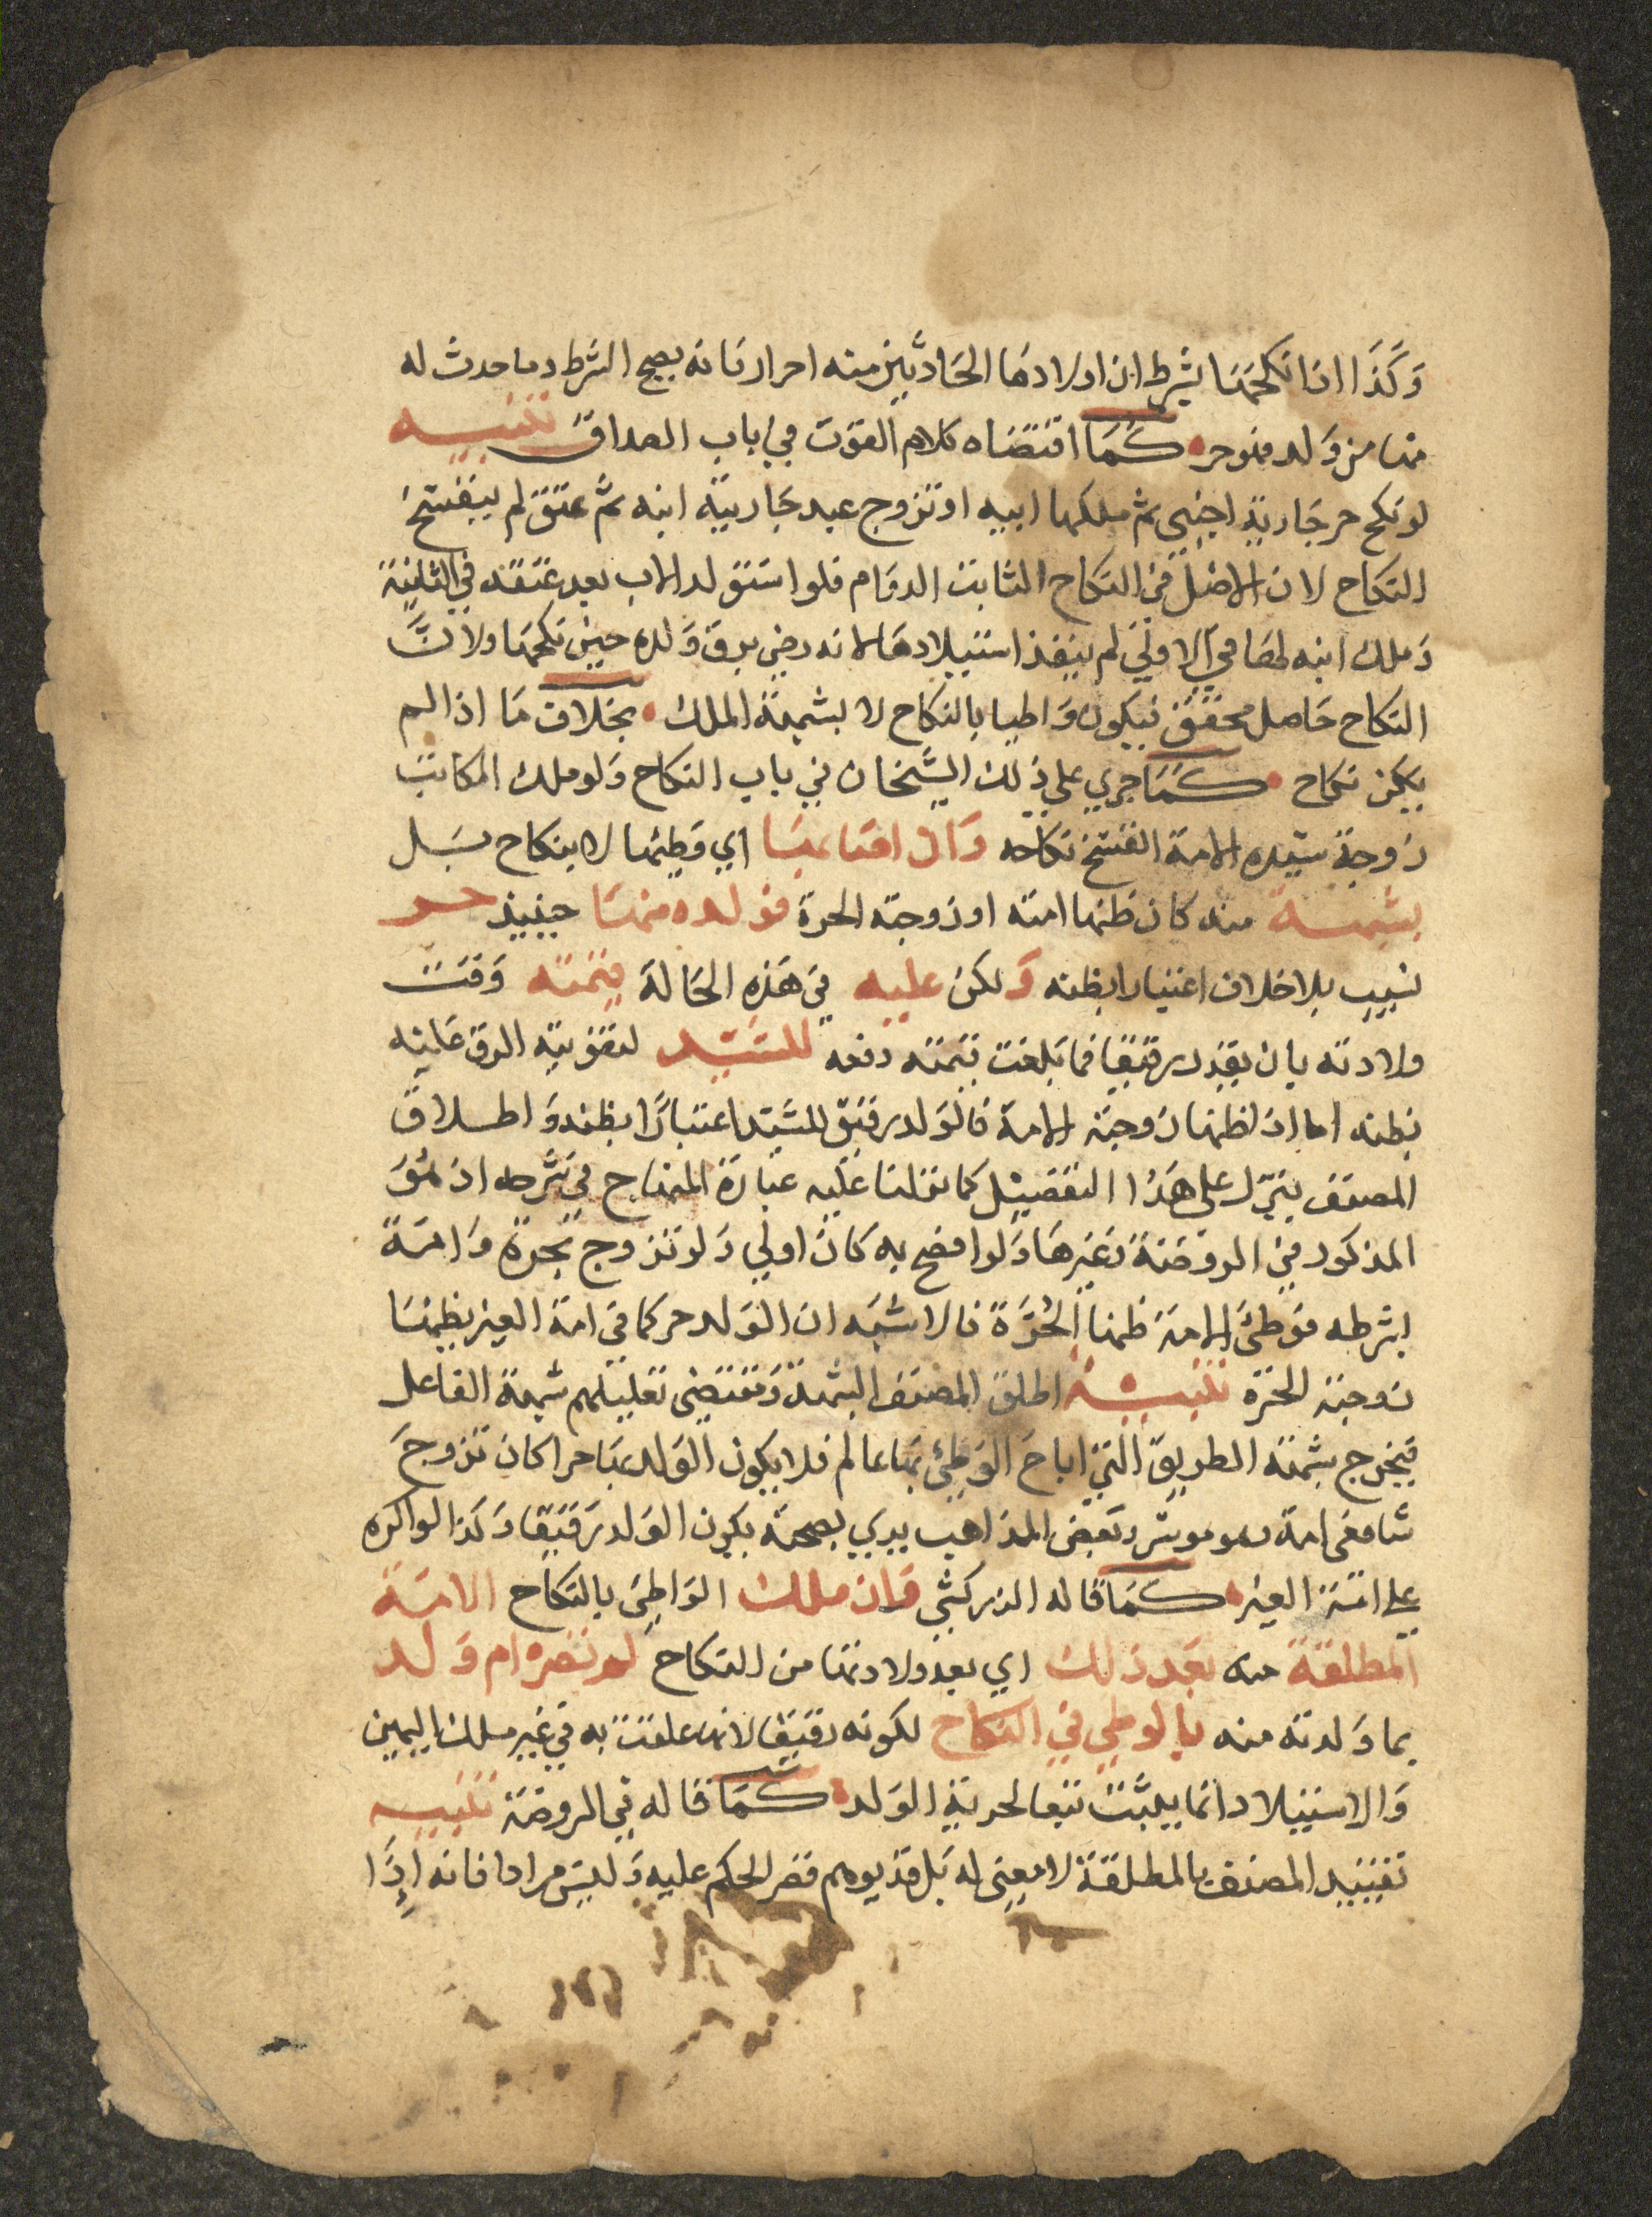 وكذا اذا نكحها بشرط ان اولادها الحادثين منه احرار فانه يصح الشرط وما حدث له
منها من ولد فهو حر كما اقتضاه كلام القوت في باب الصداق تنبيه
لو نكح حر جارية اجنبي ثم ملكها ابيه او تزوج عبد جارية ابنه ثم عتق لم ينفسخ
النكاح لان الاصل في النكاح الثابت الدوام فلو استولد الاب بعد عتقه في الثانية
وملك ابنه لها في الاولى لم ينفذ استيلادها لانه رضي برق ولده حين نكحها ولان
النكاح حاصل محقق فيكون واطيا بالنكاح لا بشبهة الملك بخلاف ما اذا لم
يكن نكاح كما جرى على ذلك الشيخان في باب النكاح ولو ملك المكاتب
زوجة سيده الامة انفسخ نكاحه وان اصابها اي وطئها لا بنكاح بل
بشبهة منه كان ظنها امته او زوجته الحرة فولده منها حينيذ حر
نسيب بلا خلاف اعتبارا بظنه ولكن عليه في هذه الحالة قيمته وقت
ولادته بان يقدر رقيقا فما بلغت قيمته دفعه للسيد لتفويته الرق عليه
بظنه اما اذا ظنها زوجته الامة فالولد رقيق للسيد اعتبارا بظنه واطلاق
المصنف ينزل على هذا التفصيل كما نزلنا عليه عبارة المنهاج في شرحه اذ هو
المذكور في الروضة وغيرها ولو افصح به كان اولى ولو تزوج بحرة وامة
بشرطه فوطئ الامة ظنها الحرة فالاشبه ان الولد حر كما في امة الغير بظنها
زوجته الحرة تنبيه اطلق المصنف الشبهة ومقتضى تعليلهم شبهة الفاعل
فيخرج بشبهة الطريق التي اباح الوطئ بها عالم فلا يكون الولد بها حرا كان تزوج
شافعي امة وهو موسر وبعض المذاهب يرى بصحته يكون الولد رقيقا وكذا لو اكره
على امة الغير كما قاله الزركشي فان ملك الواطئ بالنكاح الامة
المطلقة منه بعد ذلك اي بعد ولادتها من النكاح لم تصر ام ولد
بما ولدته منه بالوطي في النكاح لكونه رقيقا لانها علقت به في غير ملك اليمين
والاستيلاد انما يثبت تبعا لحرية الولد كما قاله في الروضة تنبيه
تقييد المصنف بالمطلقة لا معنى له بل قد يوهم قصر الحكم عليه وليس مرادا فانه اذا